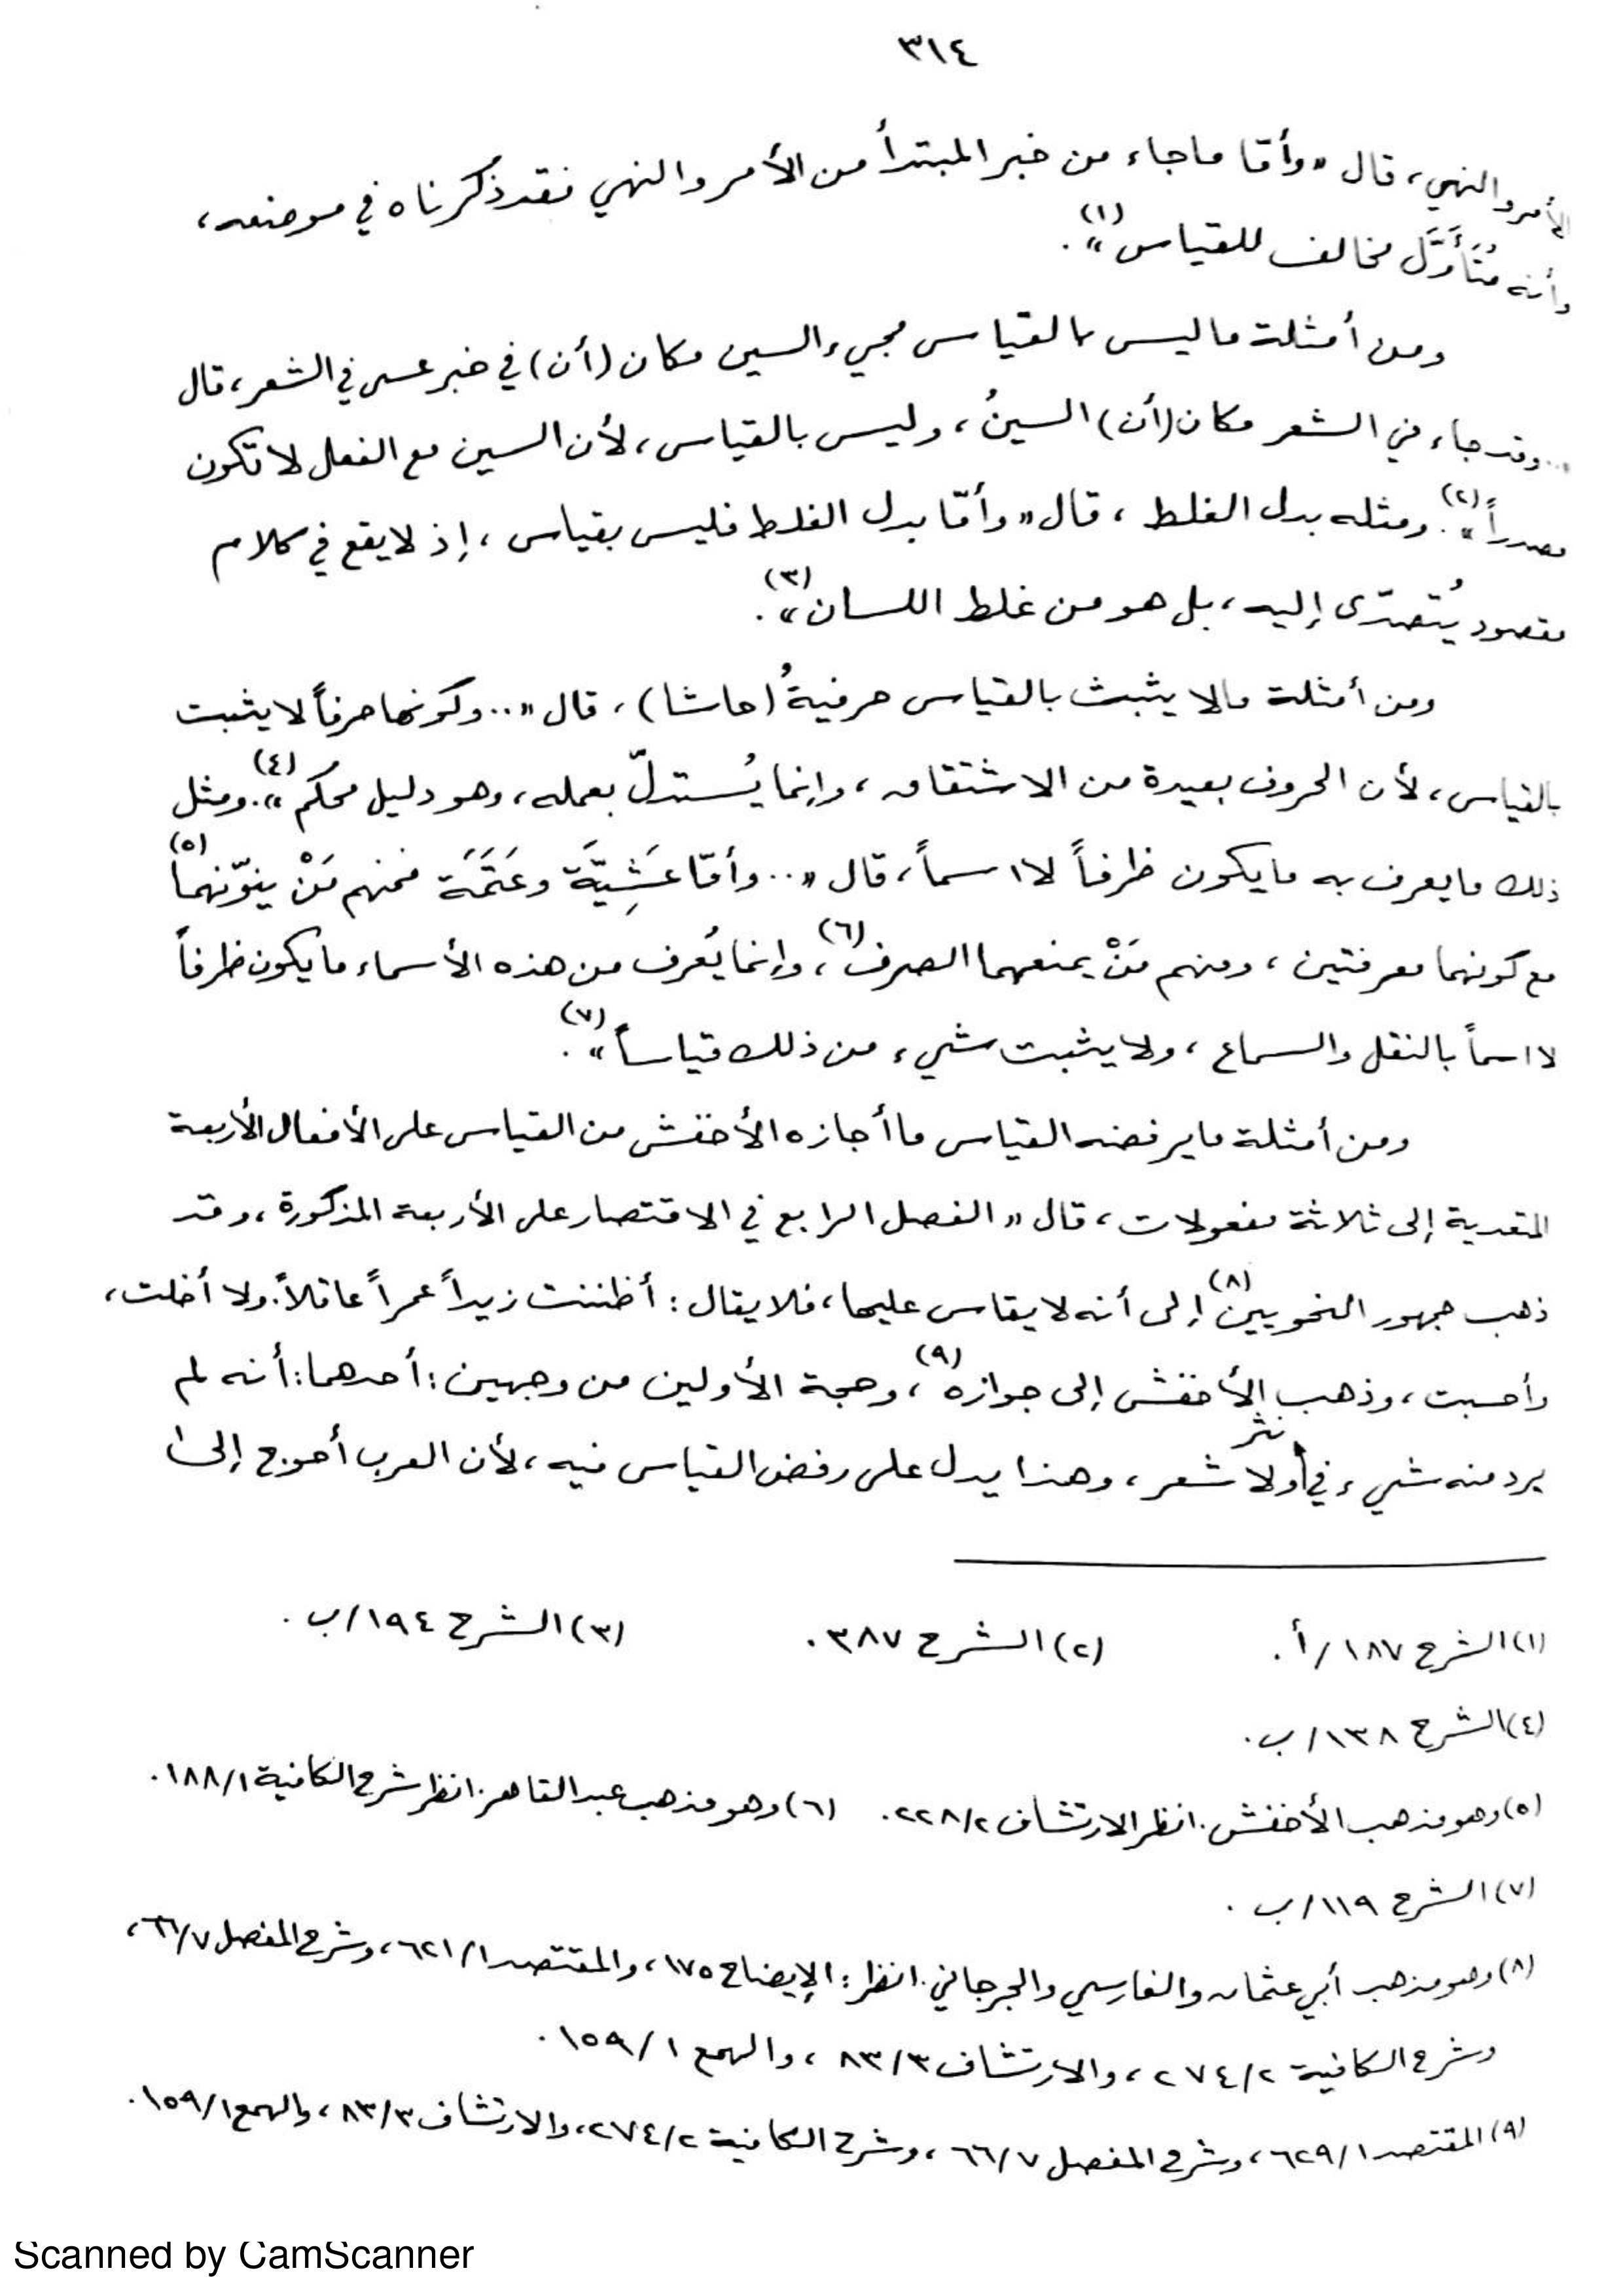 ٣١٤
الأمر والنهي، قال «وأمّا ما جاء من خبر المبتدأ من الأمر والنهي فقد ذكرناه في موضعه،
وأنه مُتَأَوَّل مخالف للقياس»(١).
ومن أمثلة ما ليس بالقياس مجيء السين مكان (أن) في خبر عسى في الشعر، قال
«..وقد جاء في الشعر مكان (أن) السينُ، وليس بالقياس، لأن السين مع الفعل لا تكون
مصدراً»(٢). ومثله بدل الغلط، قال «وأمّا بدل الغلط فليس بقياس، إذ لا يقع في كلام
مقصود يُتصدّى إليه، بل هو من غلط اللسان»(٣).
ومن أمثلة ما لا يثبت بالقياس حرفيةُ (حاشا)، قال «..وكونها حرفاً لا يثبت
بالقياس، لأن الحروف بعيدة من الاشتقاق، وإنما يُستدلّ بعمله، وهو دليل محكم»(٤). ومثل
ذلك ما يعرف به ما يكون ظرفاً لا اسماً، قال «..وأمّا عَشِيَّة وعَتَمَة فمنهم مَنْ ينوّنهما(٥)
مع كونهما معرفتين، ومنهم مَنْ يمنعهما الصرف(٦)، وإنما يُعرف من هذه الأسماء ما يكون ظرفاً
لا اسماً بالنقل والسماع، ولا يثبت شيء من ذلك قياساً»(٧).
ومن أمثلة ما يرفضه القياس ما أجازه الأخفش من القياس على الأفعال الأربعة
المتعدية إلى ثلاثة مفعولات، قال «الفصل الرابع في الاقتصار على الأربعة المذكورة، وقد
ذهب جمهور النحويين(٨) إلى أنه لا يقاس عليها، فلا يقال: أظننت زيداً عمراً عاقلاً. ولا أخلت،
وأحسبت، وذهب الأخفش إلى جوازه(٩)، وحجة الأولين من وجهين: أحدهما: أنه لم
يرد منه شيء في نثر ولا شعر، وهذا يدل على رفض القياس فيه، لأن العرب أحوج إلى
(١) الشرح ١٨٧/أ. (٢) الشرح ٣٨٧. (٣) الشرح ١٩٤/ب.
(٤) الشرح ١٣٨/ب.
(٥) وهو مذهب الأخفش. انظر الارتشاف ٢٢٨/٢. (٦) وهو مذهب عبد القاهر. انظر شرح الكافية ١٨٨/١.
(٧) الشرح ١١٩/ب.
(٨) وهو مذهب أبي عثمان والفارسي والجرجاني. انظر: الإيضاح ١٧٥، والمقتصد ٦٢١/١، وشرح المفصل ٦٦/٧،
وشرح الكافية ٢٧٤/٢، والارتشاف ٨٣/٣، والهمع ١٥٩/١.
(٩) المقتصد ٦٢٩/١، وشرح المفصل ٦٦/٧، وشرح الكافية ٢٧٤/٢، والارتشاف ٨٣/٣، والهمع ١٥٩/١.
Scanned by CamScanner